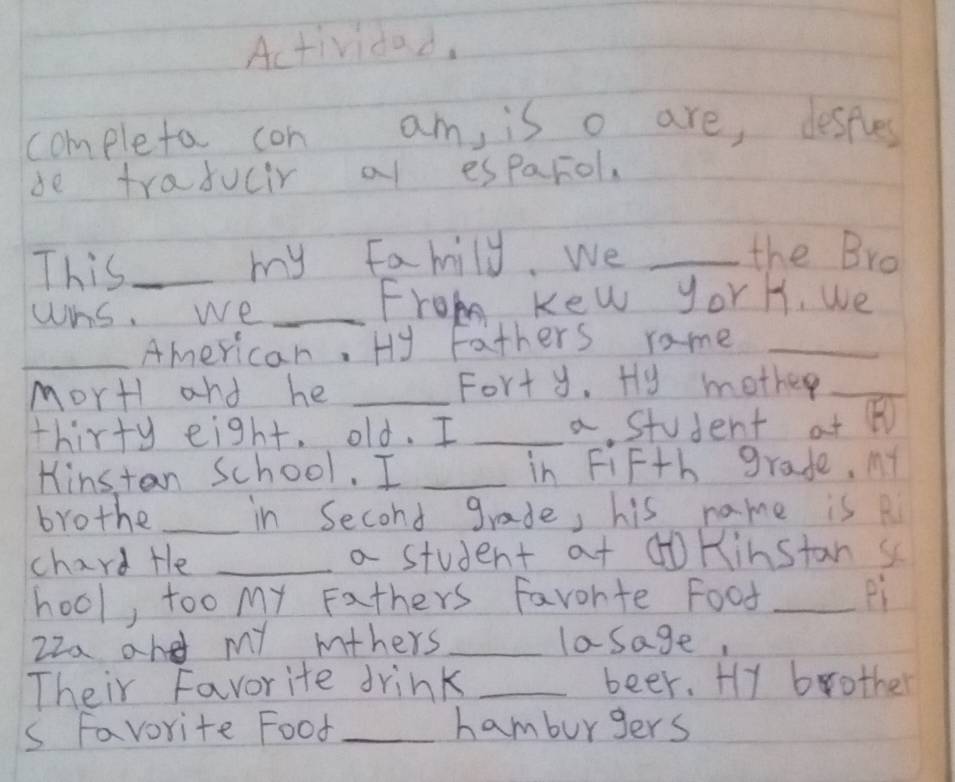 Actividad.
completa con am, is o are, despues
de traducir al español.
This___ my Family. We ___ the Bro
wns. We ___ From Kew York. We
___ American. Hy Fathers rame ___
Mortl and he ___ Forty. Hy mother ___
thirty eight. old. I ___ a. student at (H)
Kinstan school. I ___ in FiFth grade. My
brothe ___ in Second grade, his name is Ri
chard He ___ a student at (H) Kinstan sc
hool, too My Fathers Favorite Food ___ Pi
zza and My mthers ___ lasage,
Their Favorite drink ___ beer. Hy brother
s Favorite Food ___ hamburgers